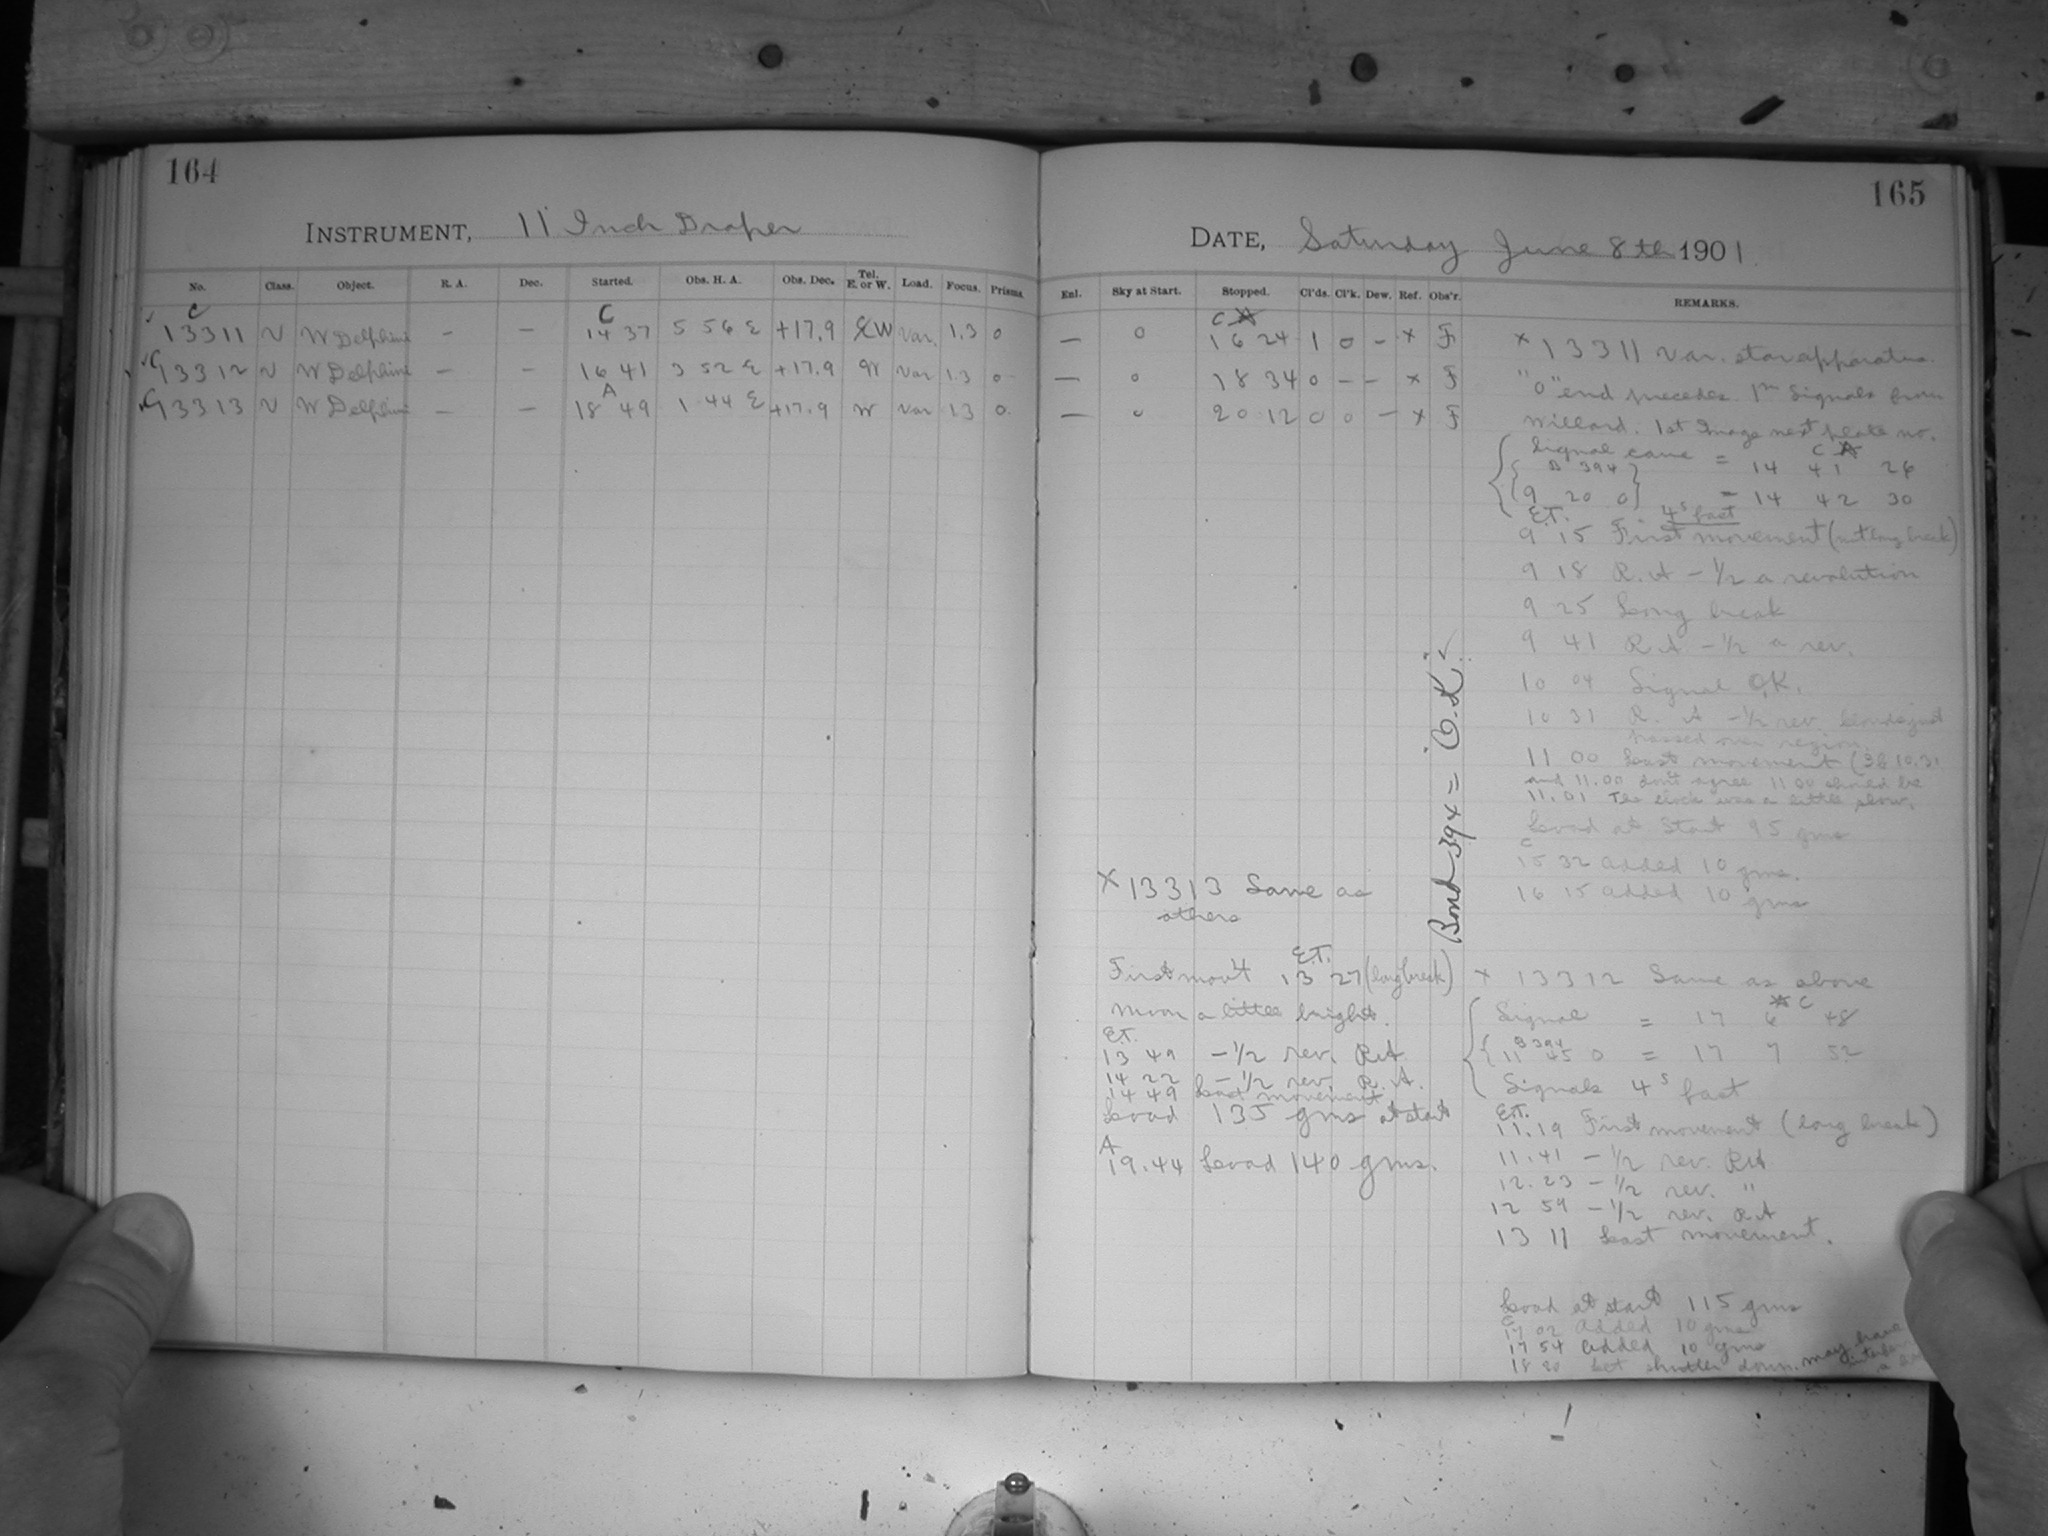 164
INSTRUMENT, 11 Inch Draper
No. Class. Object. R. A. Dec. Started. Obs. H. A. Obs. Dec. Tel. E. or W. Load. Focus. Prisms.
C C
13311 V W Delphini — — 14 37 5 56 E +17.9 W Var. 1.3 0
C 13312 V W Delphini — — 16 41 3 52 E +17.9 W Var 1.3 0
A
C 13313 V W Delphini — — 18 49 1 44 E +17.9 W Var 1.3 0
165
DATE, Saturday June 8th 1901
Enl. Sky at Start. Stopped. Cl'ds. Cl'k. Dew. Ref. Obs'r. REMARKS.
C
— 0 16 24 1 0 – x F
— 0 18 34 0 – – x F
— 0 20 12 0 0 – x F
x 13311 Var. star apparatus.
"0" end precedes. Signals from
Willard. 1st Image next plate no.
Signal came = 14 41 26
B 394
9 20 0 = 14 42 30
E.T. 4s fast
9 15 First movement (not long break)
9 18 R.A – 1/2 a revolution
9 25 Long break
9 41 R.A – 1/2 a rev.
10 04 Signal O.K.
10 31 R. A – 1/2 rev. Clouds just
passed over region.
11 00 Last movement (If 10.31
and 11.00 don't agree 11 00 should be
11.01 The clock was a little slow.
Load at Start 95 gms
C
15 32 added 10 gms.
16 15 added 10 gms
Bond 394 = O.K.
x 13313 Same as
others
E.T.
First mov't 13 27 (long break)
Moon a little bright.
E.T.
13 49 – 1/2 rev. R.A
14 22 – 1/2 rev. R.A.
14 49 Last movement
Load 135 gms at start
A
19.44 Load 140 gms.
x 13312 Same as above
C
Signal = 17 6 48
B 394
11 45 0 = 17 7 52
Signals 4s fast
E.T.
11.19 First movement (long break)
11.41 – 1/2 rev. R.A
12.23 – 1/2 rev. "
12 59 – 1/2 rev. R.A
13 11 Last movement.
Load at start 115 gms
C
17 02 added 10 gms
17 54 added 10 gms
18 20 Let shutter down. may have